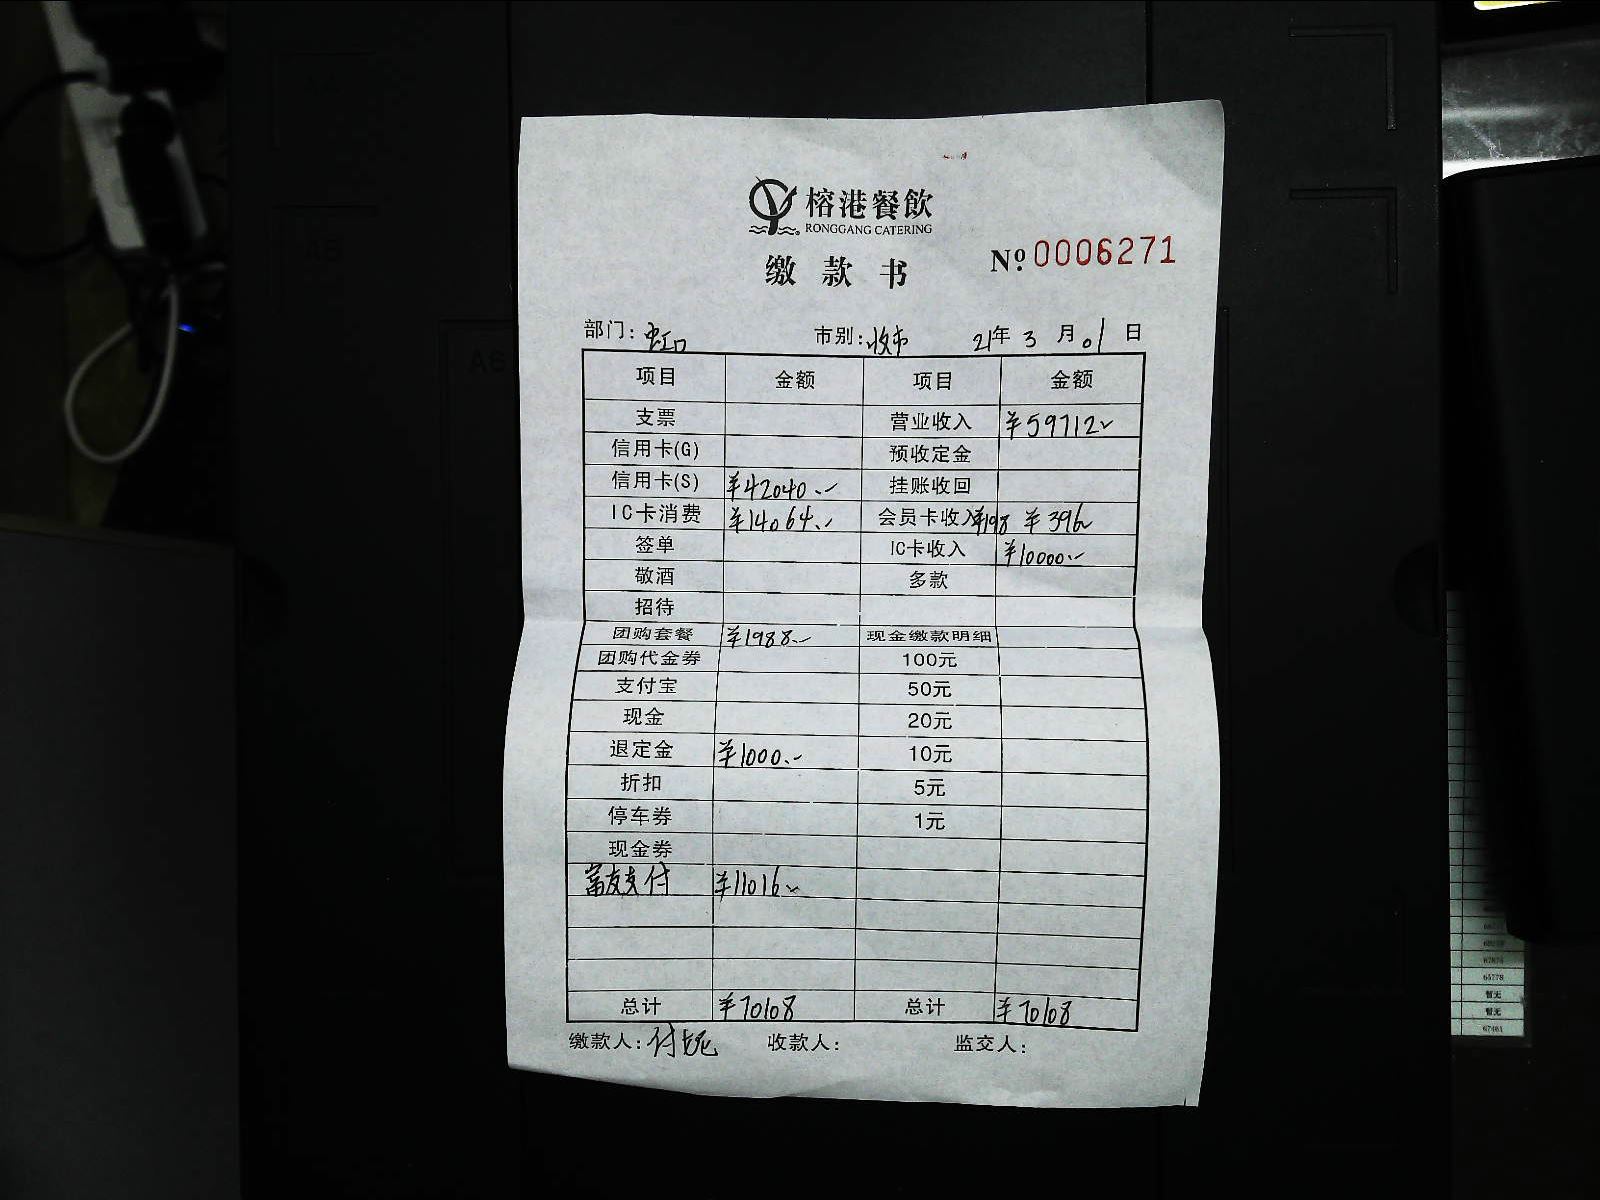 榕港餐飲
RONGGANG CATERING
缴款书
№ 0006271
部门：虹口 市别：收市 21年 3 月 01 日
项目 金额 项目 金额
支票 营业收入 ¥59712
信用卡(G) 预收定金
信用卡(S) ¥42040.- 挂账收回
IC卡消费 ¥14064.- 会员卡收入 ¥198 ¥396
签单 IC卡收入 ¥10000.-
敬酒 多款
招待
团购套餐 ¥1988.- 现金缴款明细
团购代金券 100元
支付宝 50元
现金 20元
退定金 ¥1000.- 10元
折扣 5元
停车券 1元
现金券
富友支付 ¥11016
总计 ¥70108 总计 ¥70108
缴款人： 收款人： 监交人：
A6
A5
65778
暂无
暂无
67461